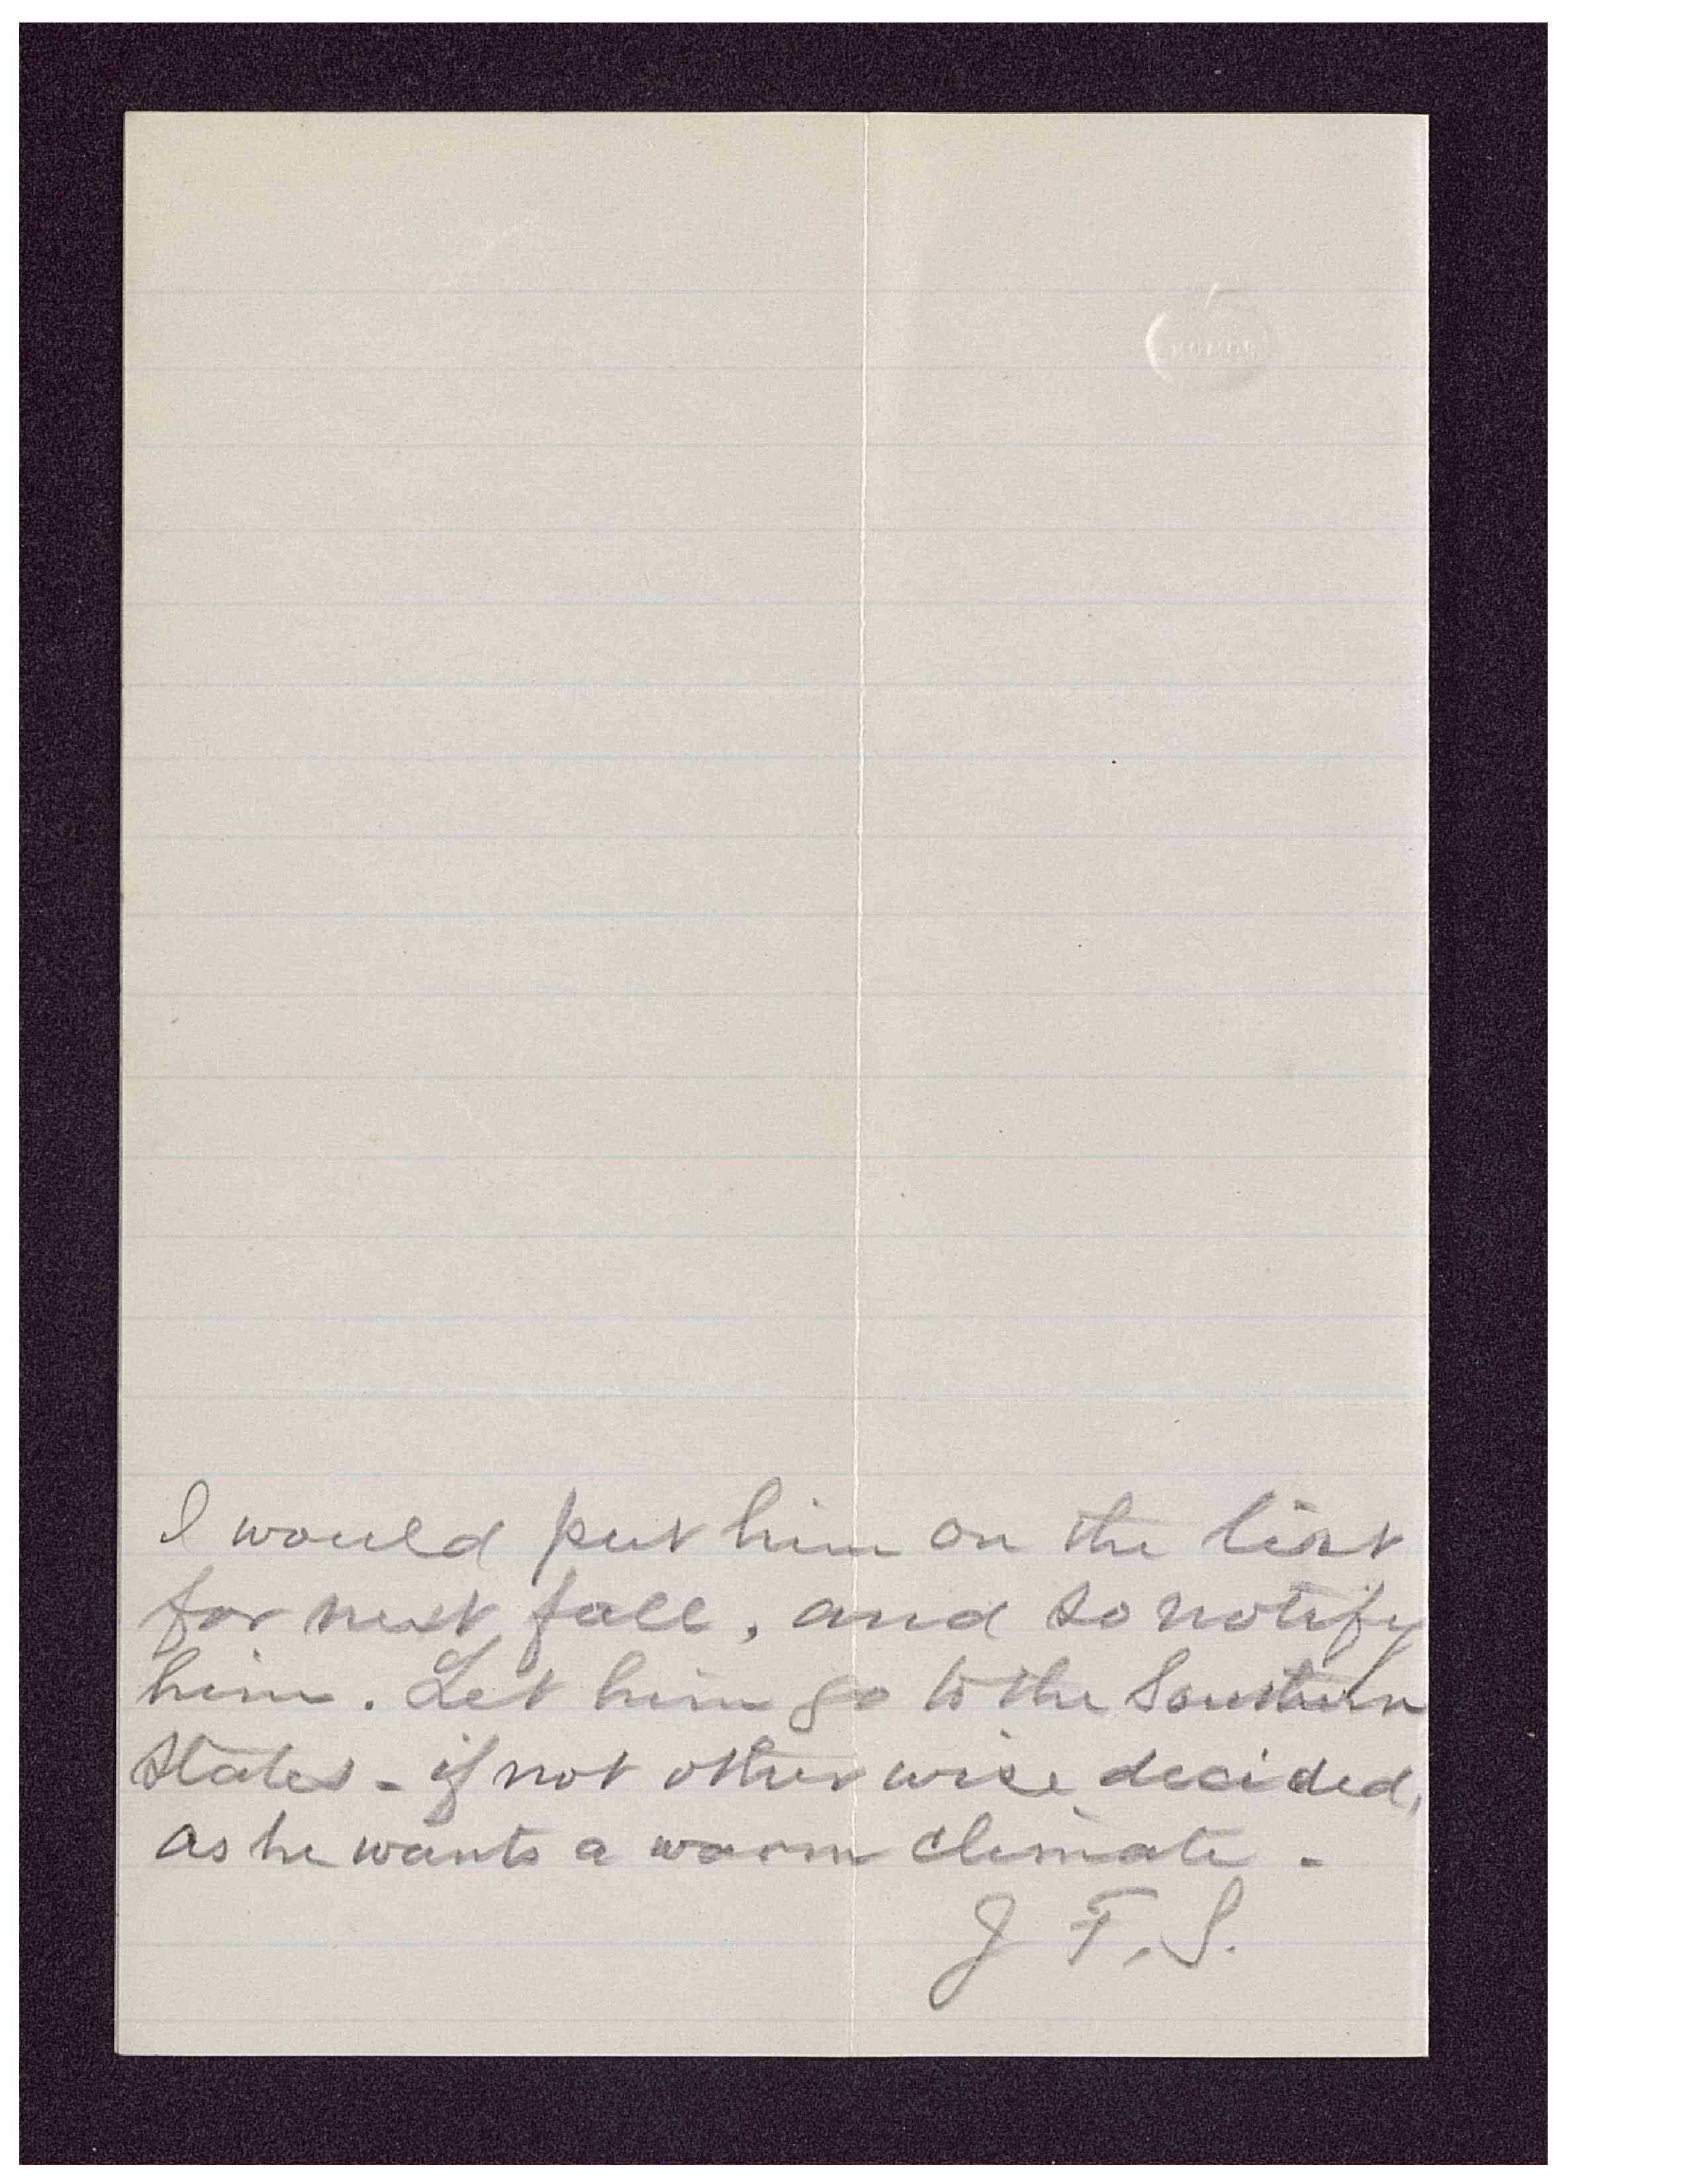 I would put him on the list
for next fall, and so notify
him. Let him go to the Southern
States - if not otherwise decided,
as he wants a warm climate -
J. F. S.